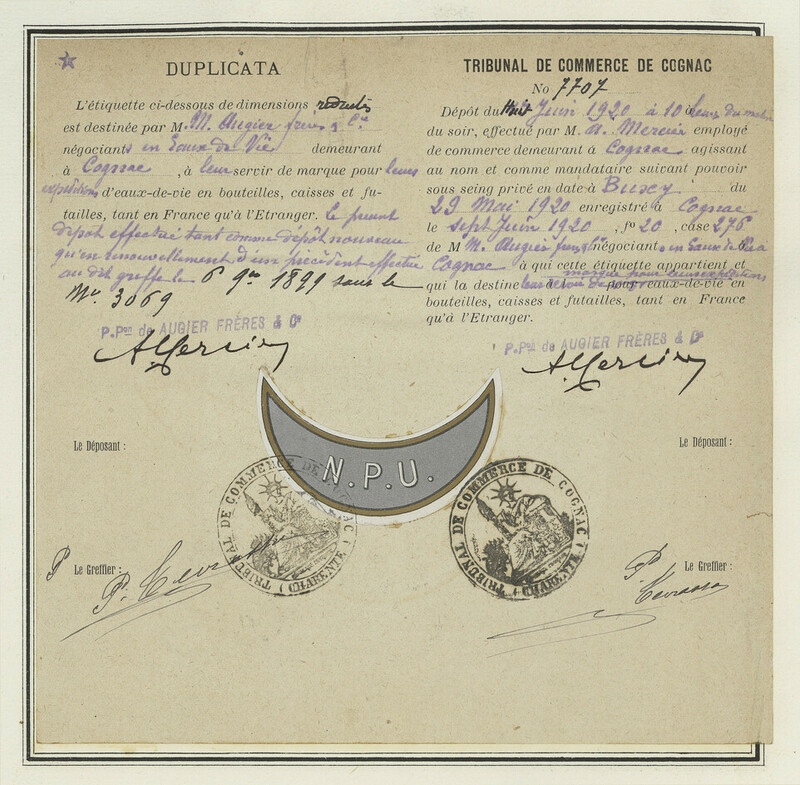 DUPLICATA
L'étiquette ci-dessous de dimensions réduites
est destinée par M. M. Augier frères & Cie
négociants en Eaux de Vie demeurant
à Cognac, à leur servir de marque pour leurs
expéditions d'eaux-de-vie en bouteilles, caisses et fu-
tailles, tant en France qu'à l'Etranger. Le présent
dépôt effectué tant comme dépôt nouveau
qu'en renouvellement d'un précédent effectué
au dit greffe le 6 9bre 1899 sous le
No 3069
P. Pon de AUGIER FRÈRES & Cie
AMercier
Le Déposant :
Le Greffier :
TRIBUNAL DE COMMERCE DE COGNAC
No 7707
Dépôt du Huit Juin 1920 à 10 heures du matin
du soir, effectué par M. A. Mercier employé
de commerce demeurant à Cognac agissant
au nom et comme mandataire suivant pouvoir
sous seing privé en date à du
29 Mai 1920 enregistré à Cognac
le sept Juin 1920, fo 20, case 276
de M M. Augier frères négociants en Eaux de Vie à
Cognac à qui cette étiquette appartient et
marque pour leurs expéditions
qui la destine à leur servir de pour eaux-de-vie en
bouteilles, caisses et futailles, tant en France
qu'à l'Etranger.
P. Pon de AUGIER FRÈRES & Cie
AMercier
Le Déposant :
Le Greffier :
N.P.U.
TRIBUNAL DE COMMERCE DE COGNAC (CHARENTE)
TRIBUNAL DE COMMERCE DE COGNAC (CHARENTE)